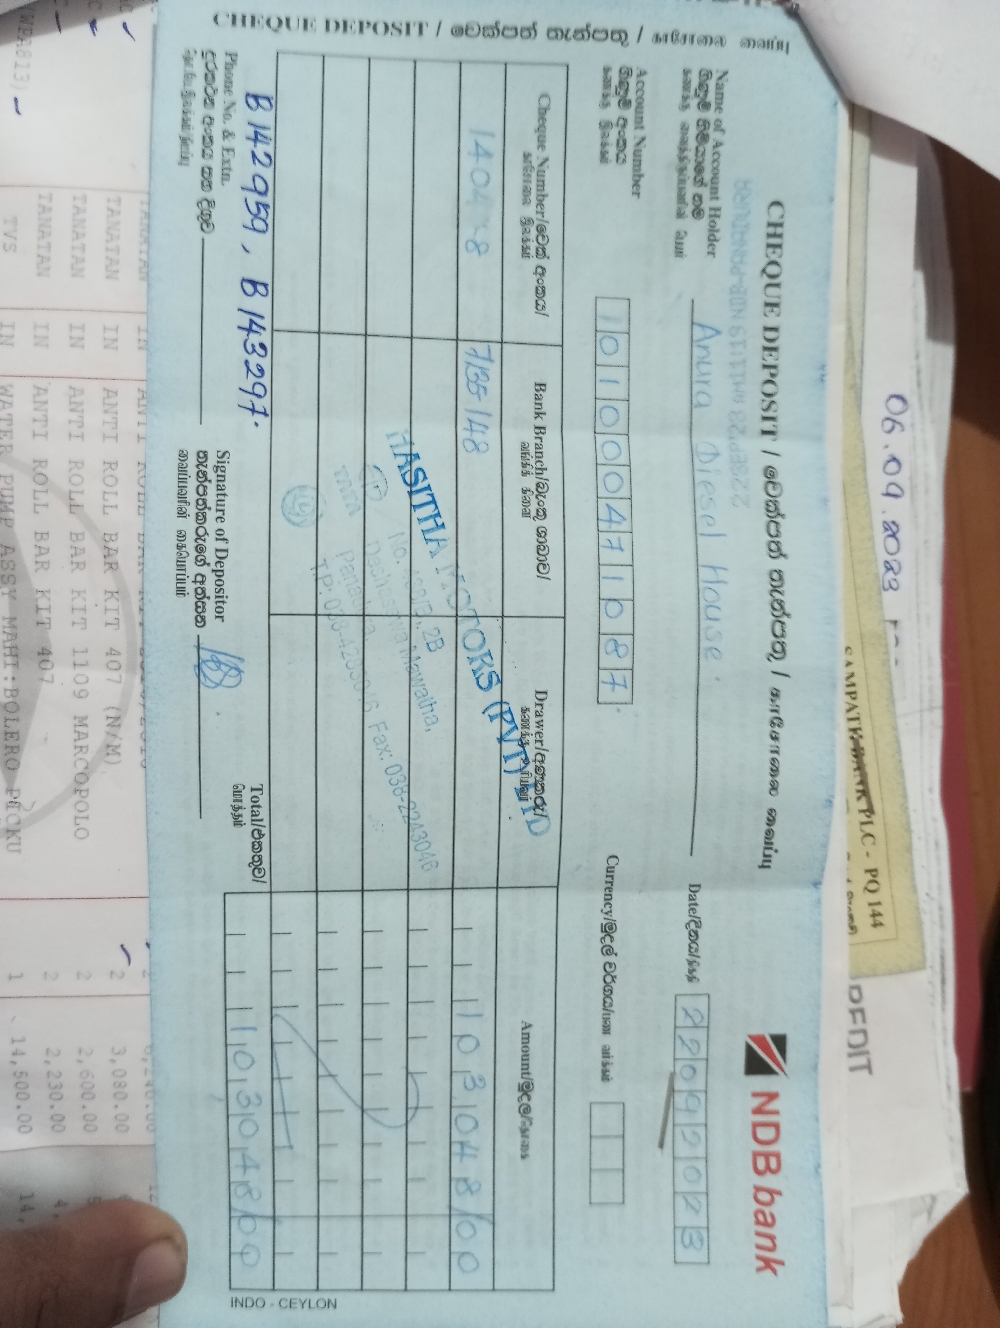 CHEQUE DEPOSIT / චෙක්පත් තැන්පතු / காசோலை வைப்பு
CHEQUE DEPOSIT / චෙක්පත් තැන්පතු / காசோலை வைப்பு
NDB bank
22SEP'23 AM11:19 NDB-PANADURA
Name of Account Holder
ගිණුම් හිමියාගේ නම
கணக்கு வைத்திருப்பவரின் பெயர்
Anura Diesel House
Date/දිනය/திகதி
22092023
Account Number
ගිණුම් අංකය
கணக்கு இலக்கம்
101000471087
Currency/මුදල් වර්ගය/பண வர்க்கம்
Cheque Number/චෙක් අංකය/
காசோலை இலக்கம்
Bank Branch/බැංකු ශාඛාව/
வங்கிக் கிளை
Drawer/අණකරු/
Amount/මුදල/தொகை
7135/48
103048/00
HASITHA MOTORS (PVT) LTD
2B
Mawatha,
Fax: 038-2243046
TATA
Total/එකතුව/
மொத்தம்
103048/00
B 142959, B 143297.
Phone No. & Extn.
දුරකථන අංකය සහ දිගුව
Signature of Depositor
තැන්පත්කරුගේ අත්සන
வைப்பாளரின் கையொப்பம்
INDO - CEYLON
06.09.2023
SAMPATH BANK PLC - PQ 144
TANATAN IN ANTI ROLL BAR KIT 407 (N/M) 2 3,080.00
TANATAN IN ANTI ROLL BAR KIT 1109 MARCOPOLO 2 2,600.00
TANATAN IN ANTI ROLL BAR KIT 407 2 2,230.00
TVS IN WATER PUMP ASSY MAHI:BOLERO 1 14,500.00